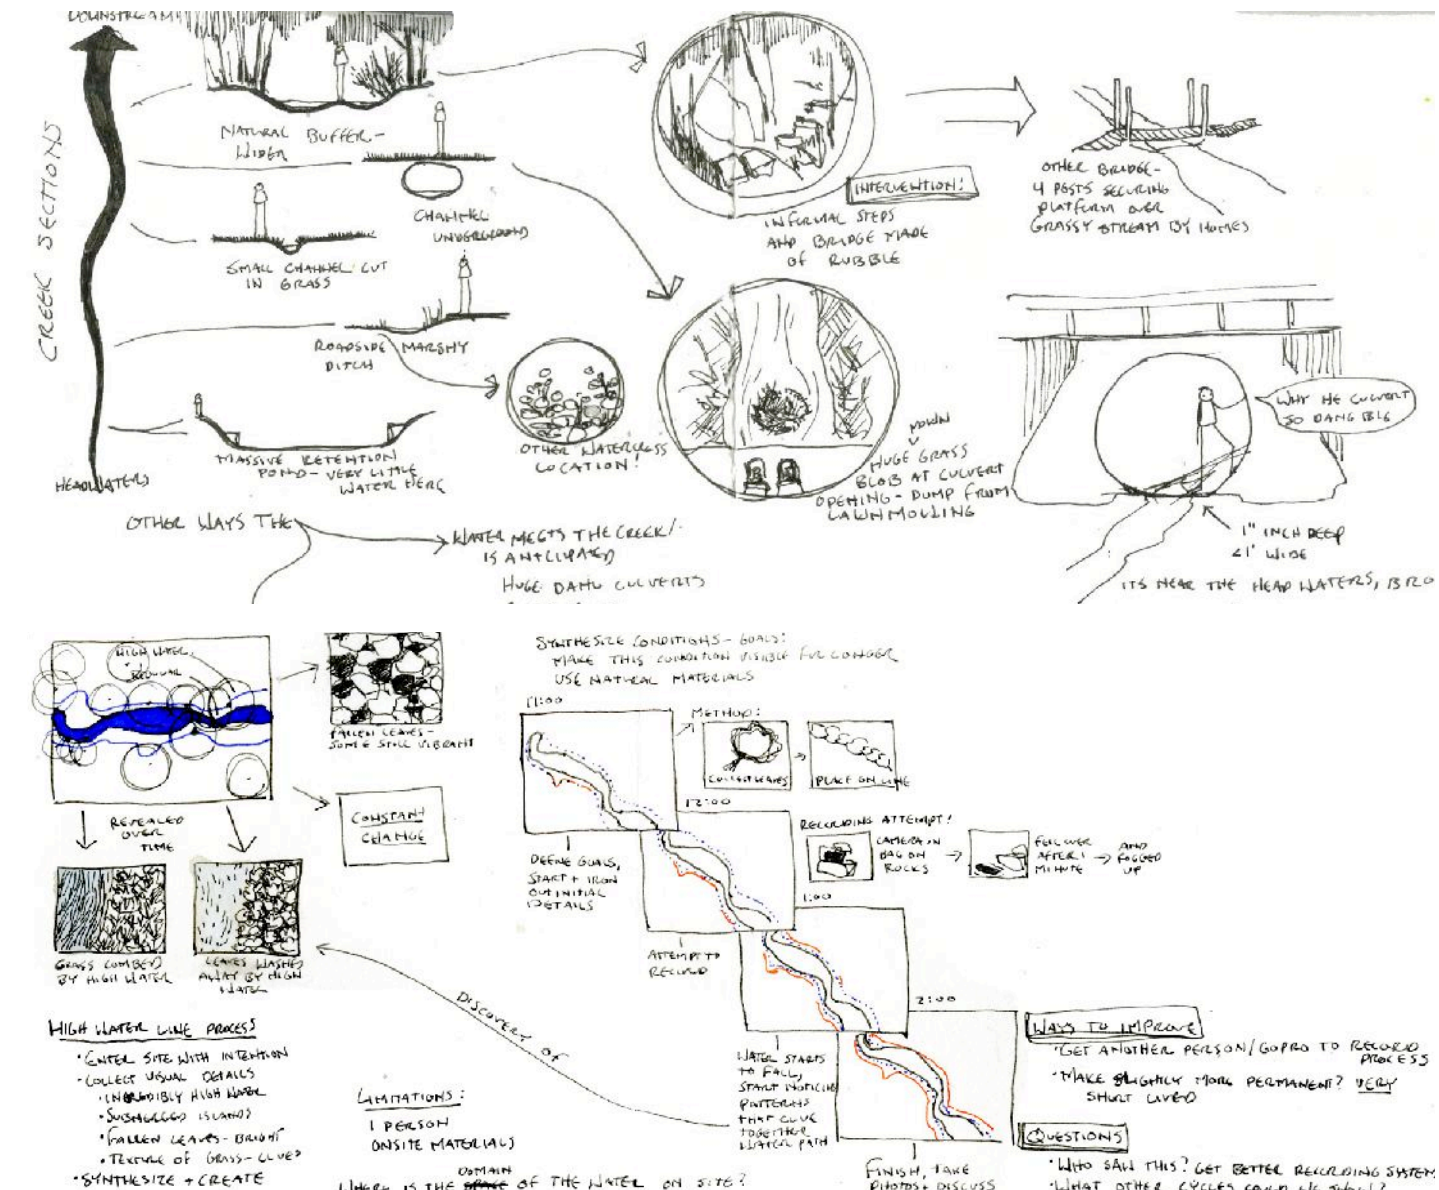 DOWNSTREAM
CREEK SECTIONS
NATURAL BUFFER-
WIDER
CHANNEL
UNDERGROUND
SMALL CHANNEL CUT
IN GRASS
ROADSIDE MARSHY
DITCH
MASSIVE RETENTION
POND- VERY LITTLE
WATER HERE
HEADWATERS
OTHER WATERCRESS
LOCATION!
INTERVENTION!
INFORMAL STEPS
AND BRIDGE MADE
OF RUBBLE
OTHER BRIDGE-
4 POSTS SECURING
PLATFORM OVER
GRASSY STREAM BY HOMES
MOWN
HUGE GRASS
BLOB AT CULVERT
OPENING - DUMP FROM
LAWNMOWING
WHY HE CULVERT
SO DANG BIG
1" INCH DEEP
<1' WIDE
ITS NEAR THE HEAD WATERS, BRO
OTHER WAYS THE
WATER MEETS THE CREEK/
IS ANTICIPATED
HUGE DANG CULVERTS
HIGH WATER
REGULAR
FALLEN LEAVES-
SOME STILL VIBRANT
CONSTANT
CHANGE
REVEALED
OVER
TIME
GRASS COMBED
BY HIGH WATER
LEAVES WASHED
AWAY BY HIGH
WATER
HIGH WATER LINE PROCESS
• ENTER SITE WITH INTENTION
• COLLECT VISUAL DETAILS
• INCREDIBLY HIGH WATER
• SUBMERGED ISLANDS
• FALLEN LEAVES- BRIGHT
• TEXTURE OF GRASS-CLUES
• SYNTHESIZE + CREATE
LIMITATIONS:
1 PERSON
ONSITE MATERIALS
DOMAIN
WHERE IS THE SPACE OF THE WATER ON SITE?
DISCOVERY OF
SYNTHESIZE CONDITIONS- GOALS:
MAKE THIS CONDITION VISIBLE FOR LONGER
USE NATURAL MATERIALS
11:00
METHOD:
COLLECT LEAVES
PLACE ON LINE
DEFINE GOALS,
START + IRON
OUT INITIAL
DETAILS
12:00
RECORDING ATTEMPT!
CAMERA IN
BAG ON
ROCKS
FELL OVER
AFTER 1
MINUTE
AND
FOGGED
UP
ATTEMPT TO
RECORD
1:00
WATER STARTS
TO FALL,
START NOTICING
PATTERNS
THAT CLUE
TOGETHER
WATER PATH
2:00
FINISH, TAKE
PHOTOS+ DISCUSS
WAYS TO IMPROVE
• GET ANOTHER PERSON/GOPRO TO RECORD
PROCESS
• MAKE SLIGHTLY MORE PERMANENT? VERY
SHORT LIVED
QUESTIONS
• WHO SAW THIS? GET BETTER RECORDING SYSTEM
• WHAT OTHER CYCLES COULD WE SHOW?